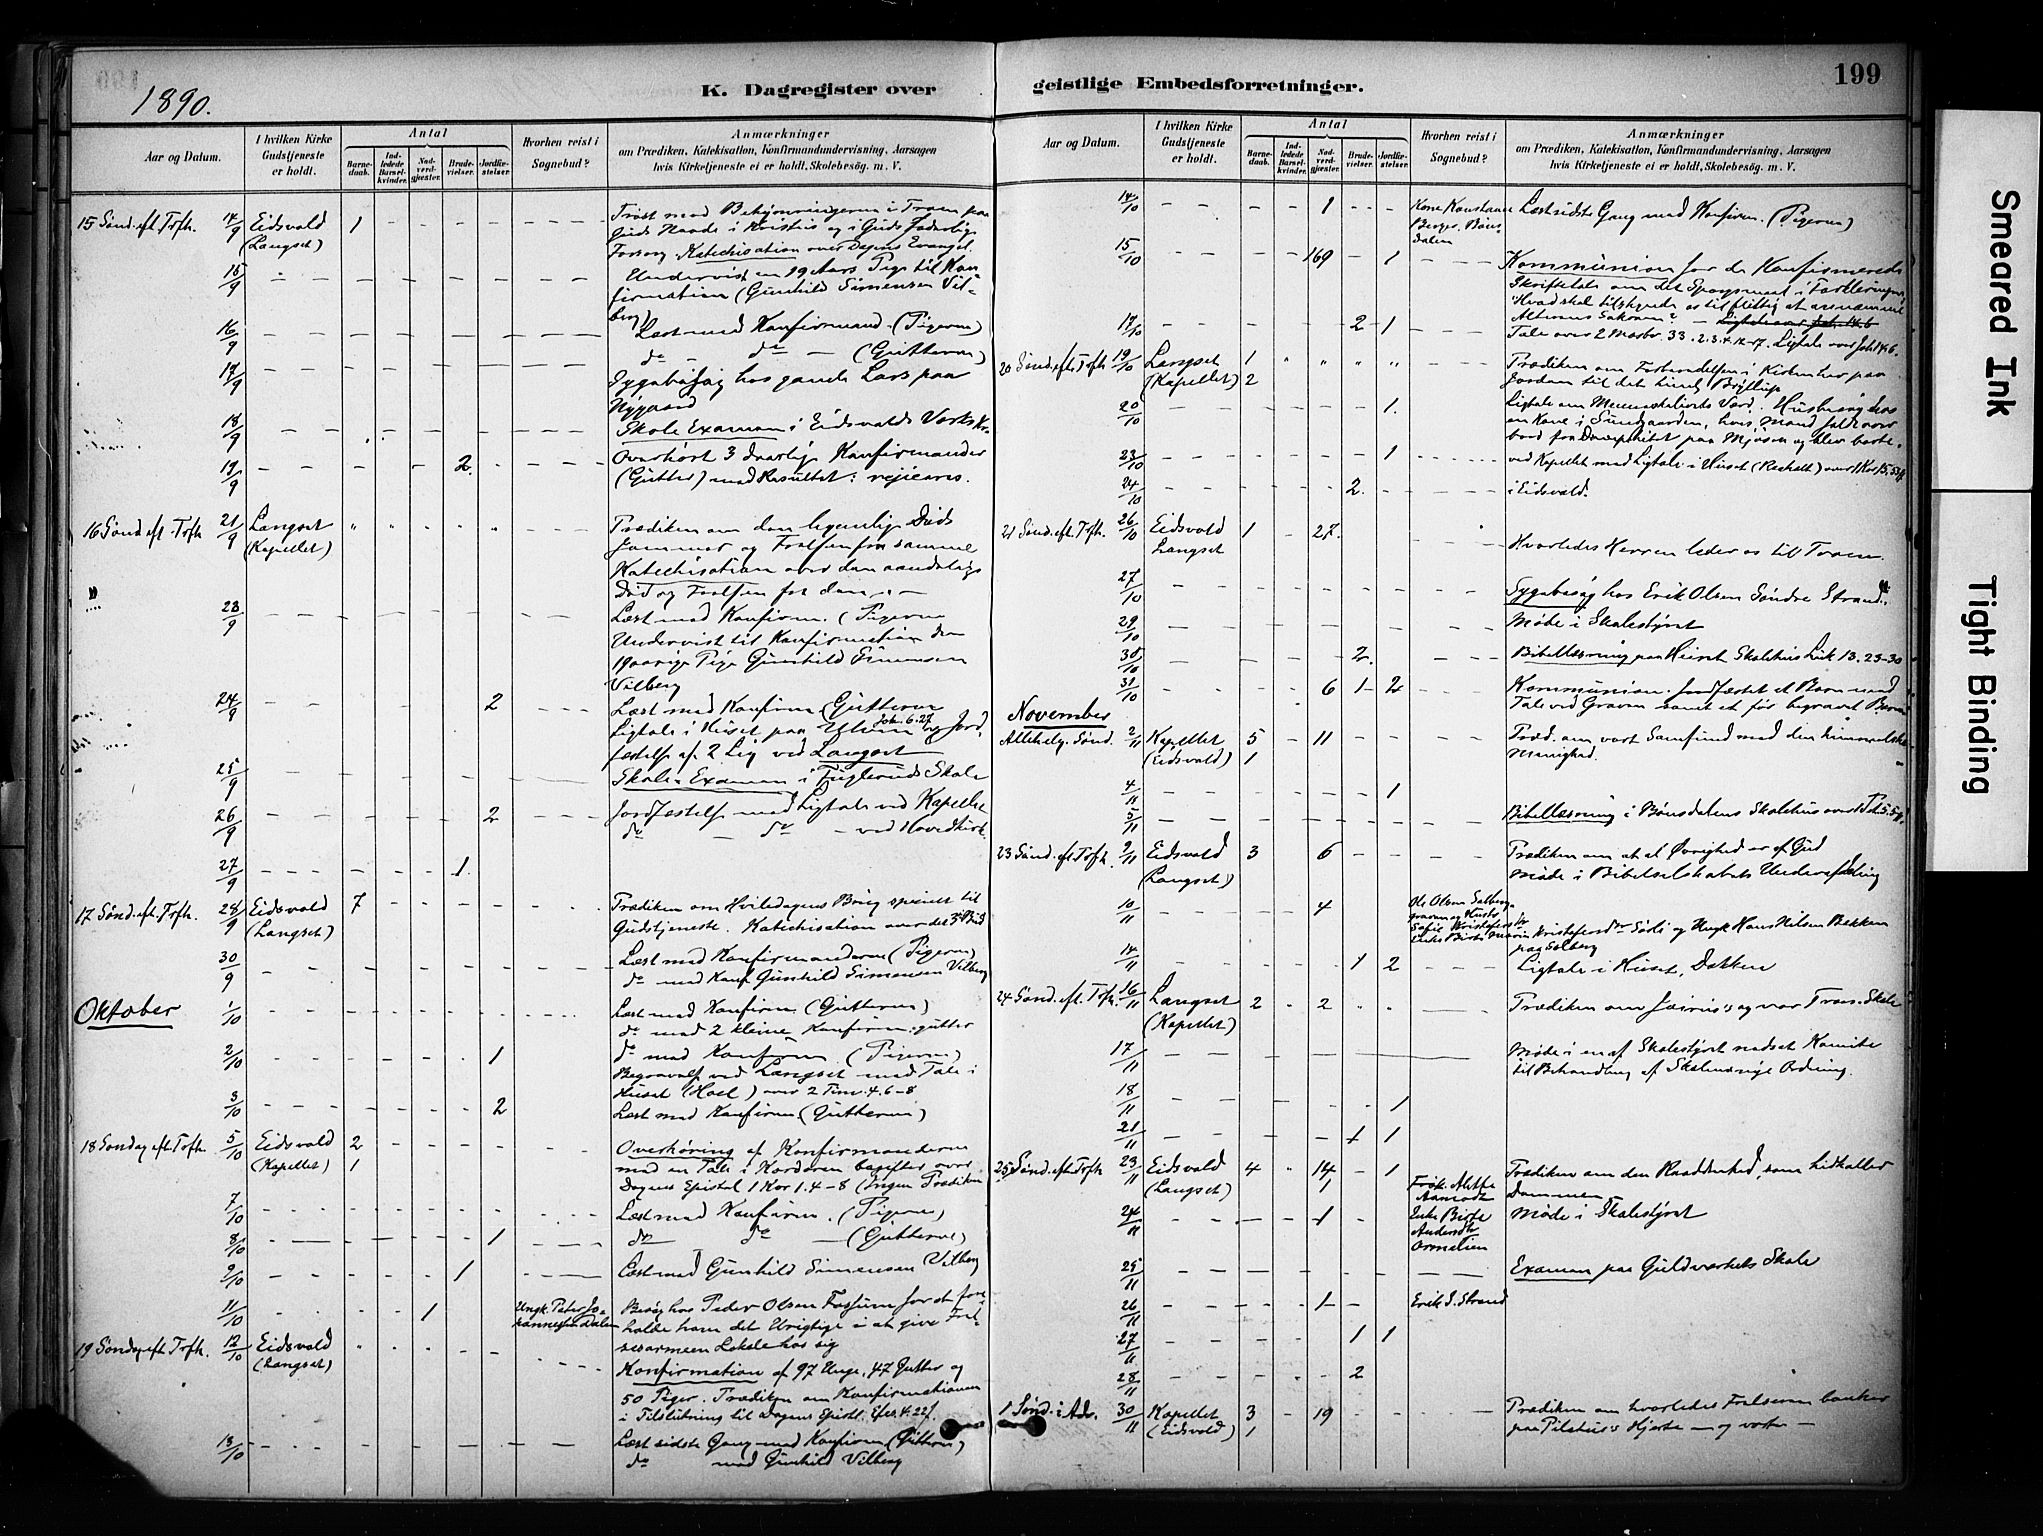 1890.
K. Dagregister over
Aar og Datum.
I hvilken Kirke
Gudstjeneste
er holdt.
Antal
Barne-
daab.
Ind-
ledede
Barsel-
kvinder.
Nad-
verd-
gjæster.
Brude-
vielser.
Jordfæ-
stelser.
Hvorhen reist i
Sognebud?
Anmærkninger
om Prædiken, Katekisation, Konfirmandundervisning, Aarsagen
hvis Kirketjeneste ei er holdt, Skolebesøg. m. V.
15 Sønd. eft. Trfh. 14/9 Eidsvald 1 - - - - Trøst mod Bekymringerne i Troen paa
(Langset) Guds Naade i Kristus og i Guds faderlige
Forsorg. Katechisation over Dagens Evangel.
15/9 Undervist en 19 Aars Pige til Kon-
firmation (Gunhild Simensen Vil-
berg)
16/9 Læst med Konfirmand. (Pigerne)
do - do - (Gutterne)
17/9 Sygebesøg hos gamle Lars paa
Nygaard
18/9 Skole Examen i Eidsvalds Værks Kr.
19/9 2. Overhørt 3 daarlige Konfirmander
(Gutter) med Resultet: rejiceres.
16 Sønd eft. Trfh. 21/9 Langset Prædiken om den legemlige Døds
(Kapellet) Jammer og Frelsen fra samme
Katechisation over den aandelige
Død og Frelsen fra den. -
23/9 Læst med Konfirm. (Pigerne
Undervist til Konfirmation den
19 aarige Pige Gunhild Simensen
Vilberg
24/9 2 Læst med Konfirm (Gutterne
Ligtale i Huset paa Joh. 6.27 og Jord,
fæstelse af 2 Lig ved Langset
25/9 Skole-Examen i Fuglerud Skole
26/9 2 Jordfæstelse med Ligtale ved Kapellet
do - do - ved Hovedkirk.
27/9 1.
17 Sønd. eft. Trfh. 28/9 Eidsvald 7 Prædiken om Hviledagens Brug specielt til
(Langset) Gudstjeneste. Katechisation over det 3die Bud
30/9 Læst med Konfirmanderne (Pigerne)
do med Konf Gunhild Simensen Vilberg
Oktober 1/10 Læst med Konfirm (Gutterne)
do med 2 kleine Konfirm. gutter
2/10 1 do med Konfirm (Pigerne)
Begravelse ved Langset med Tale i
Huset (Hoel) over 2 Tim. 4.6-8
3/10 2 Læst med Konfirm (Gutterne)
18 Søndag eft Trfh. 5/10 Eidsvald 2 Overhøring af Konfirmanderne
(Kapellet) 1 med en Tale i Kordøren bagefter over
Dagens Epistel 1 Kor 1.4-8 (Ingen Prædiken
7/10 Læst med Konfirm. (Pigerne)
8/10 1 do do - (Gutterne)
9/10 1 Læst med Gunhild Simensen Vilberg
11/10 1 Ungk. Peter Jo- Besøg hos Peder Olsen Fossum for at fore-
hannessen Dalen holde ham det Urigtige i at give Frel-
sesarmeen Lokale hos sig
19 Søndag eft Trfh. 12/10 Eidsvald
(Langset) Konfirmation af 97 Unge, 47 Gutter og
50 Piger. Prædiken om Konfirmationen
i Tilslutning til Dagens Epistel. Efes. 4.22f.
13/10 Læst sidste Gang med Konfirm (Gutterne)
do med Gunhild Vilberg
geistlige Embedsforretninger.
199
Aar og Datum.
I hvilken Kirke
Gudstjeneste
er holdt.
Antal
Barne-
daab.
Ind-
ledede
Barsel-
kvinder.
Nad-
verd-
gjæster.
Brude-
vielser.
Jordfæ-
stelser.
Hvorhen reist i
Sognebud?
Anmærkninger
om Prædiken, Katekisation, Konfirmandundervisning, Aarsagen
hvis Kirketjeneste ei er holdt, Skolebesøg. m. V.
14/10 1 Kone Læst sidste Gang med Konfirm. (Pigerne)
Berger, Bøns-
dalen
15/10 169 1 Kommunion for de Konfirmerede
Skriftetale om det Spørgsmaal i Forklaringen
Hvad skal tilskynde os til flittig at annamme
Alterens Sakram? - Ligtale over Joh. 14.6
17/10 2 1 Tale over 2 Mosbr. 33. 2.3.4.12-17. Ligtale over Joh 14.6.
20 Sønd. eft. Trfh 19/10 Langset 1 Prædiken om Forberedelsen i Kirken her paa
(Kapellet) 2 Jorden til det himl. Bryllup
20/10 1. Ligtale om Menneskelivets Værd. Husbesøg hos
en Kone i Sundgaarden, hvis Mand faldt over
bord fra Dampskibet paa Mjøsen og blev borte.
23/10 1 ved Kapellet med Ligtale i Huset over 1 Kor 15.
24/10 2. i Eidsvald.
21 Sønd. eft. Trfh. 26/10 Eidsvold 1 27.
Langset Hvorledes Herren leder os til Troen.
27/10 Sygebesøg hos Erik Olsen Søndre Strand
29/10 Møde i Skolestyret
30/10 2. Bibellæsning paa Huset Skolehus Luk 13. 23-30
31/10 6 1 2 Kommunion. Jordfæstet et Barn med
Tale ved Graven samt et før begravet Barn
November
Allehelg. Sønd. 2/11 Kapellet 5 11 Præd. om vort Samfund med den himmelske
(Eidsvald) 1 Menighed.
4/11 1
5/11 Bibellæsning i Bønsdalens Skolehus over 1 Pet. 5.
23 Sønd. eft Trfh. 9/11 Eidsvald 3 6 Prædiken om at al Øvrighed er af Gud
(Langset) Møde i Bibelselskabets Underafdeling
10/11 4 Ole Olsen
og Hustr
Kristofersdr Sødli og Ungk Hans Nilsen Bekken
paa Solberg
14/11 1 2 Ligtale i Huset, Dokken
24 Sønd. eft. Trfh. 16/11 Langset 2 2 Prædiken om Jairus's og vor Troes-Skole
(Kapellet)
17/11 Møde i en af Skolestyret nedsat Komite
til Behandling af Skolevæsnets Ordning.
18/11 1
21/11 1 1
25 Sønd. eft Trfh 23/11 Eidsvald 4 14 1 Prædiken om den Raaddenhed, som hidkalder
(Langset) 1 Frøk. Alethe Dommen
Aamodt
24/11 1 Enke Birte Møde i Skolestyret
Andersdtr
Ormelien
25/11 Examen paa Guldværkets Skole
26/11 1 Erik S. Strand
27/11 1 1
28/11 2
1 Sønd. i Adv. 30/11 Kapellet 3 19 Prædiken om hvorledes Frelseren banker
(Eidsvald) 1 paa Pilatus's Hjerte - og vort -
Smeared Ink
Tight Binding